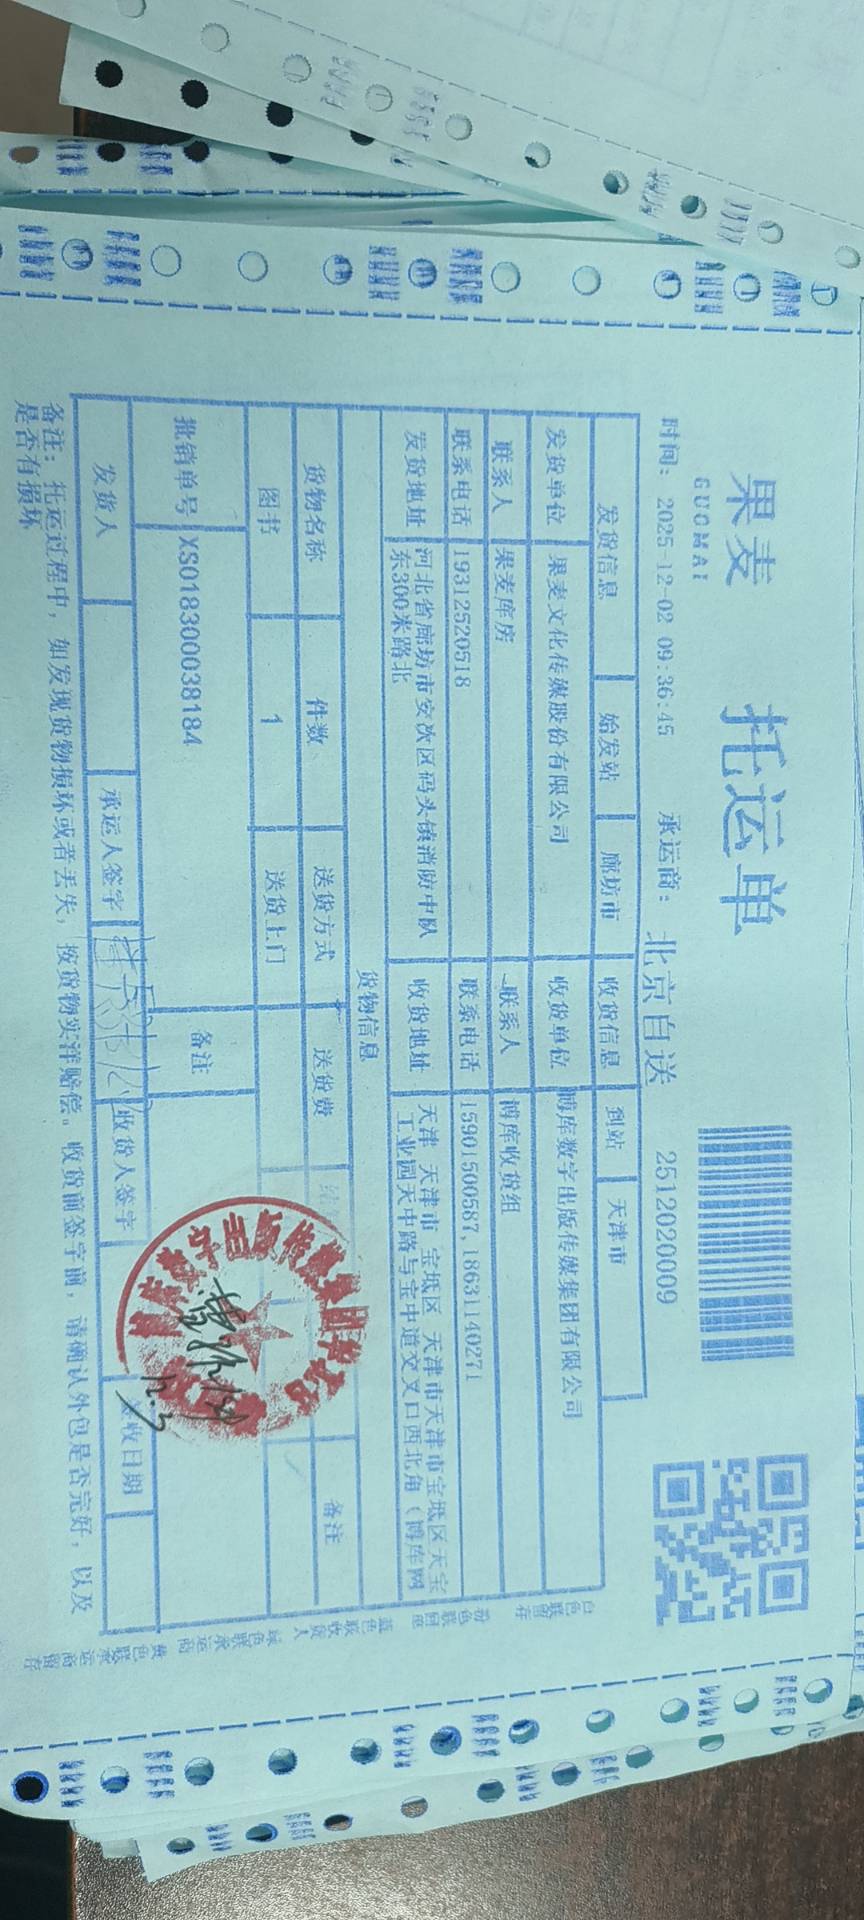 果麦
GUOMAI
托运单
时间： 2025-12-02 09:36:45 承运商： 北京自送 2512020009
发货信息 始发站 廊坊市 收货信息 到站 天津市
发货单位 果麦文化传媒股份有限公司 收货单位 博库数字出版传媒集团有限公司
联系人 果麦库房 联系人 博库收货组
联系电话 19312520518 联系电话 15901500587,18631140271
发货地址 河北省廊坊市安次区码头镇消防中队 收货地址 天津 天津市 宝坻区 天津市天津市宝坻区天宝
东300米路北 工业园天中路与宝中道交叉口西北角（博库网
货物信息
货物名称 件数 送货方式 送货费 备注
图书 1 送货上门
批销单号 XS018300038184 备注
发货人 承运人签字 收货人签字 收日期
12.3
备注：托运过程中，如发现货物损坏或者丢失，按货物实洋赔偿。收货前签字前，请确认外包是否完好，以及
是否有损坏
白色联留存
粉色联回单
蓝色联收货人
绿色联承运商
黄色联承运商留存